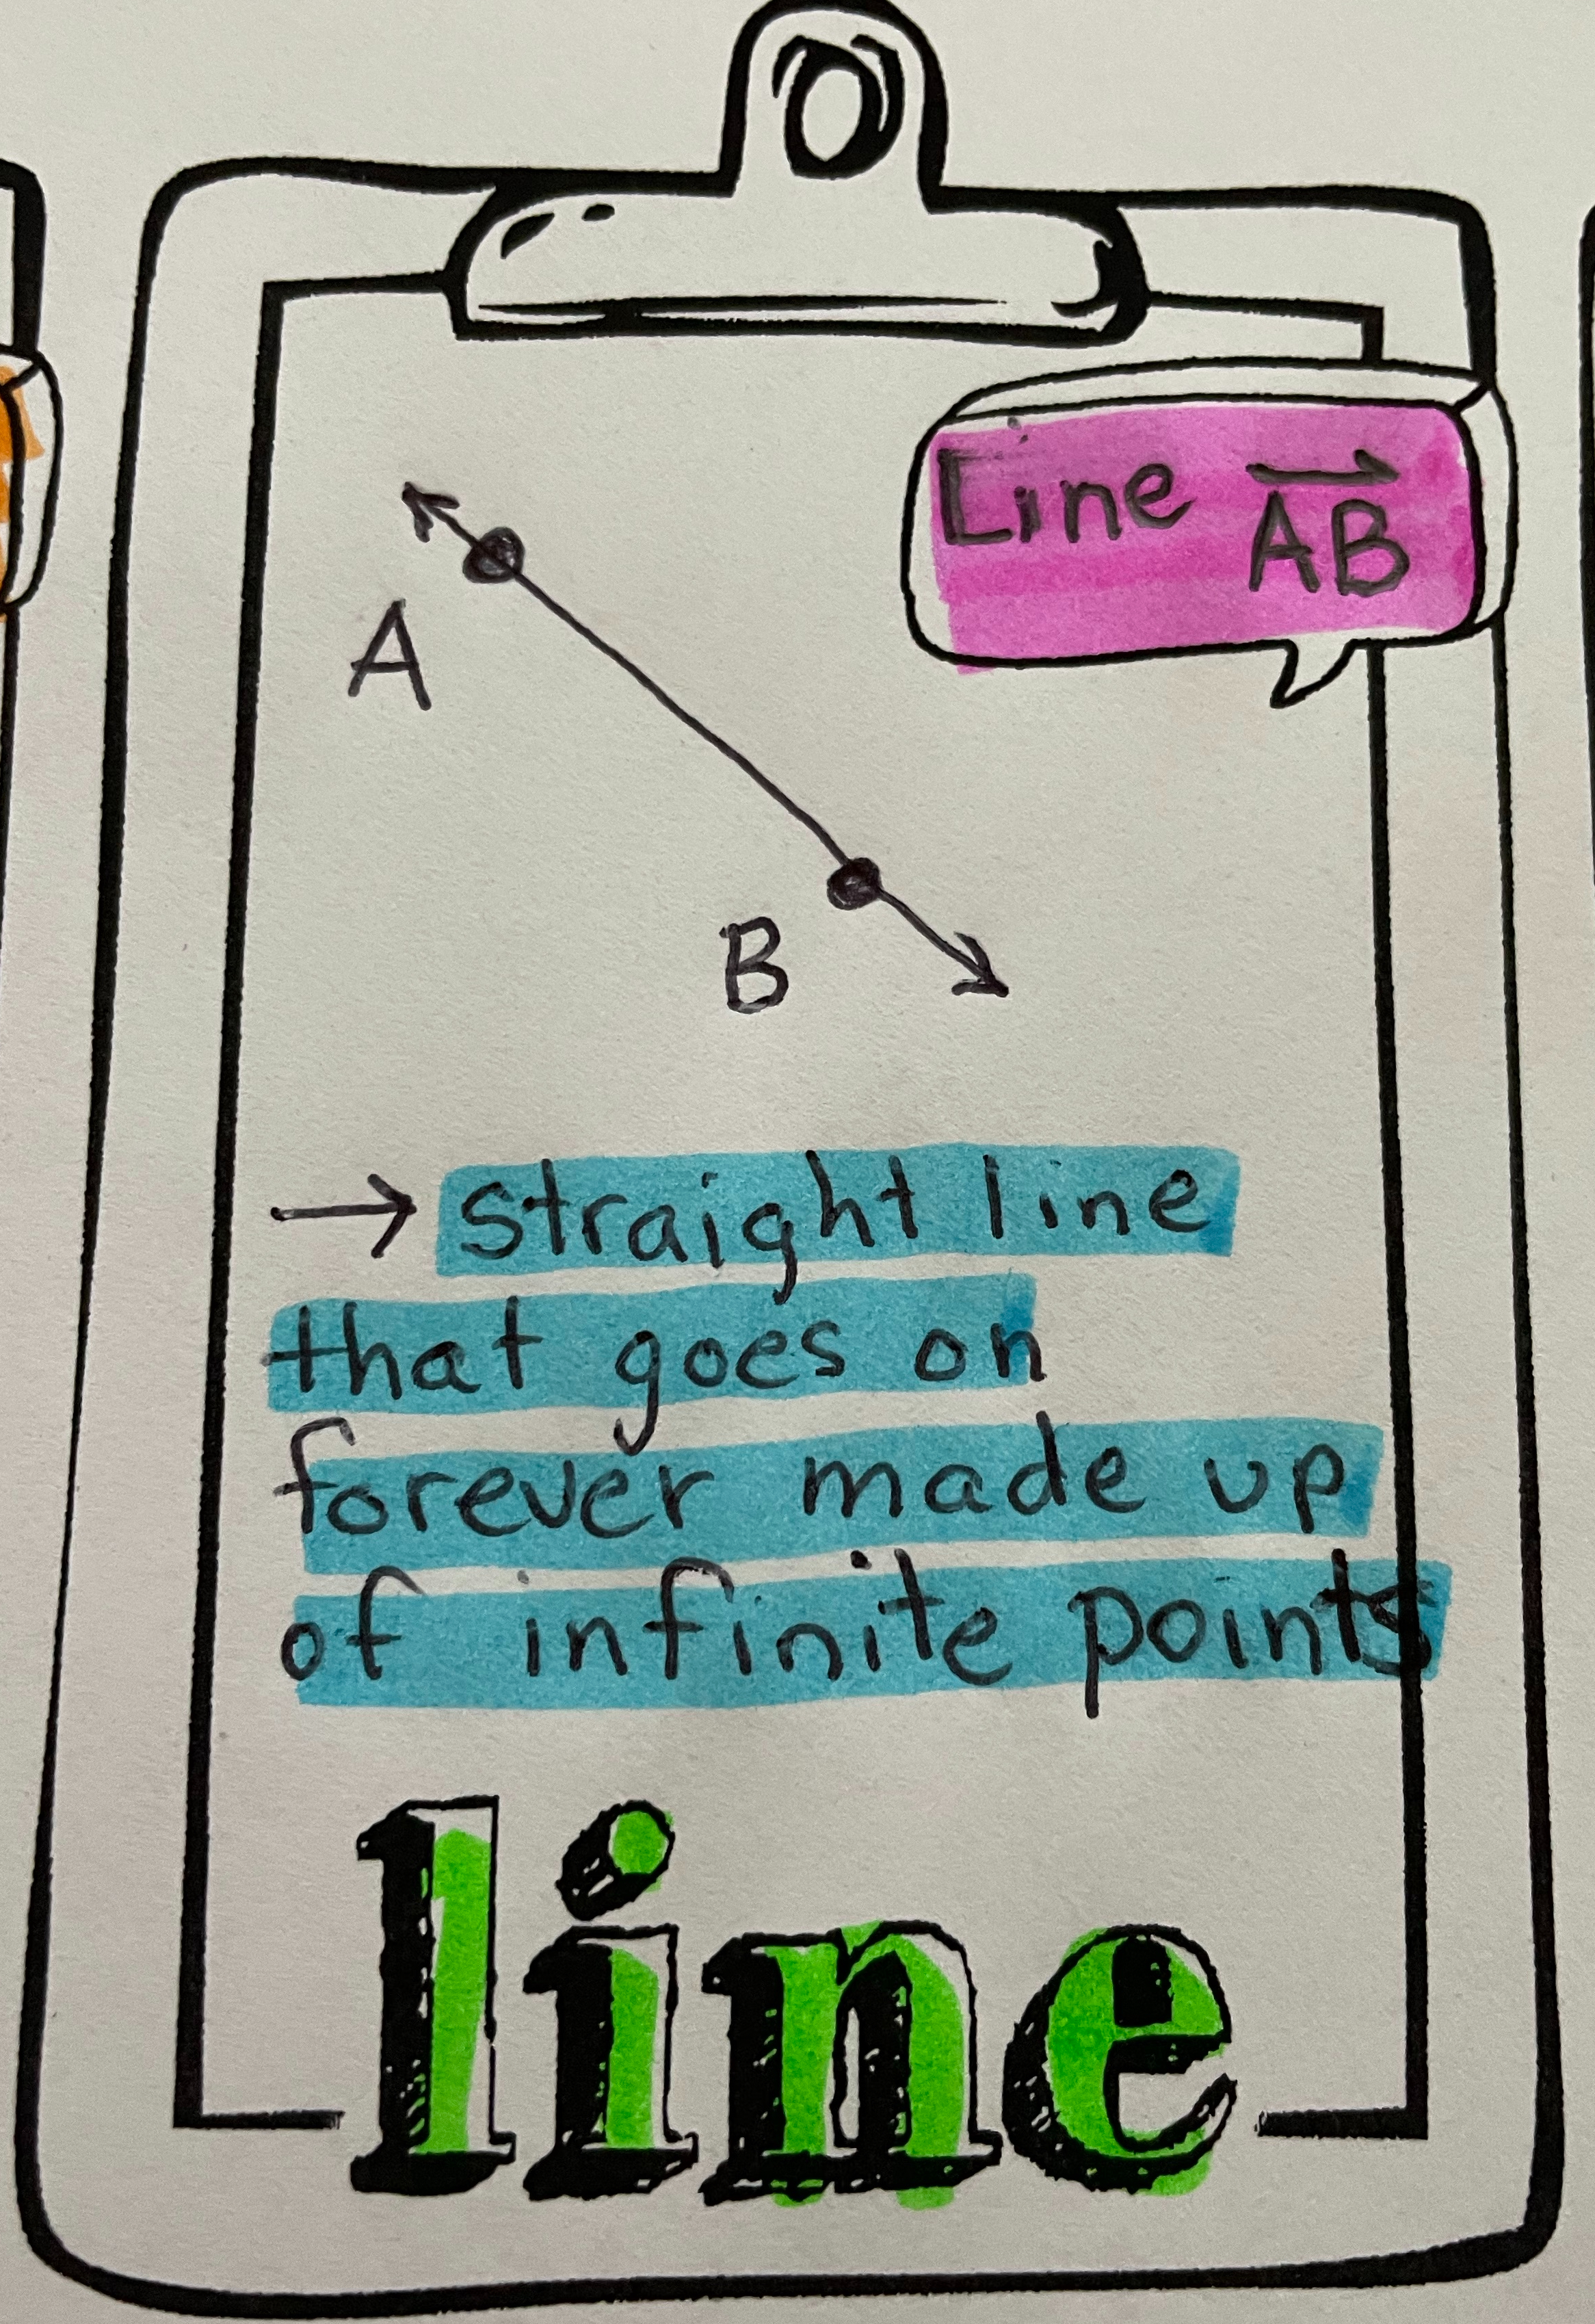 Line AB
A
B
→ straight line
that goes on
forever made up
of infinite points
line